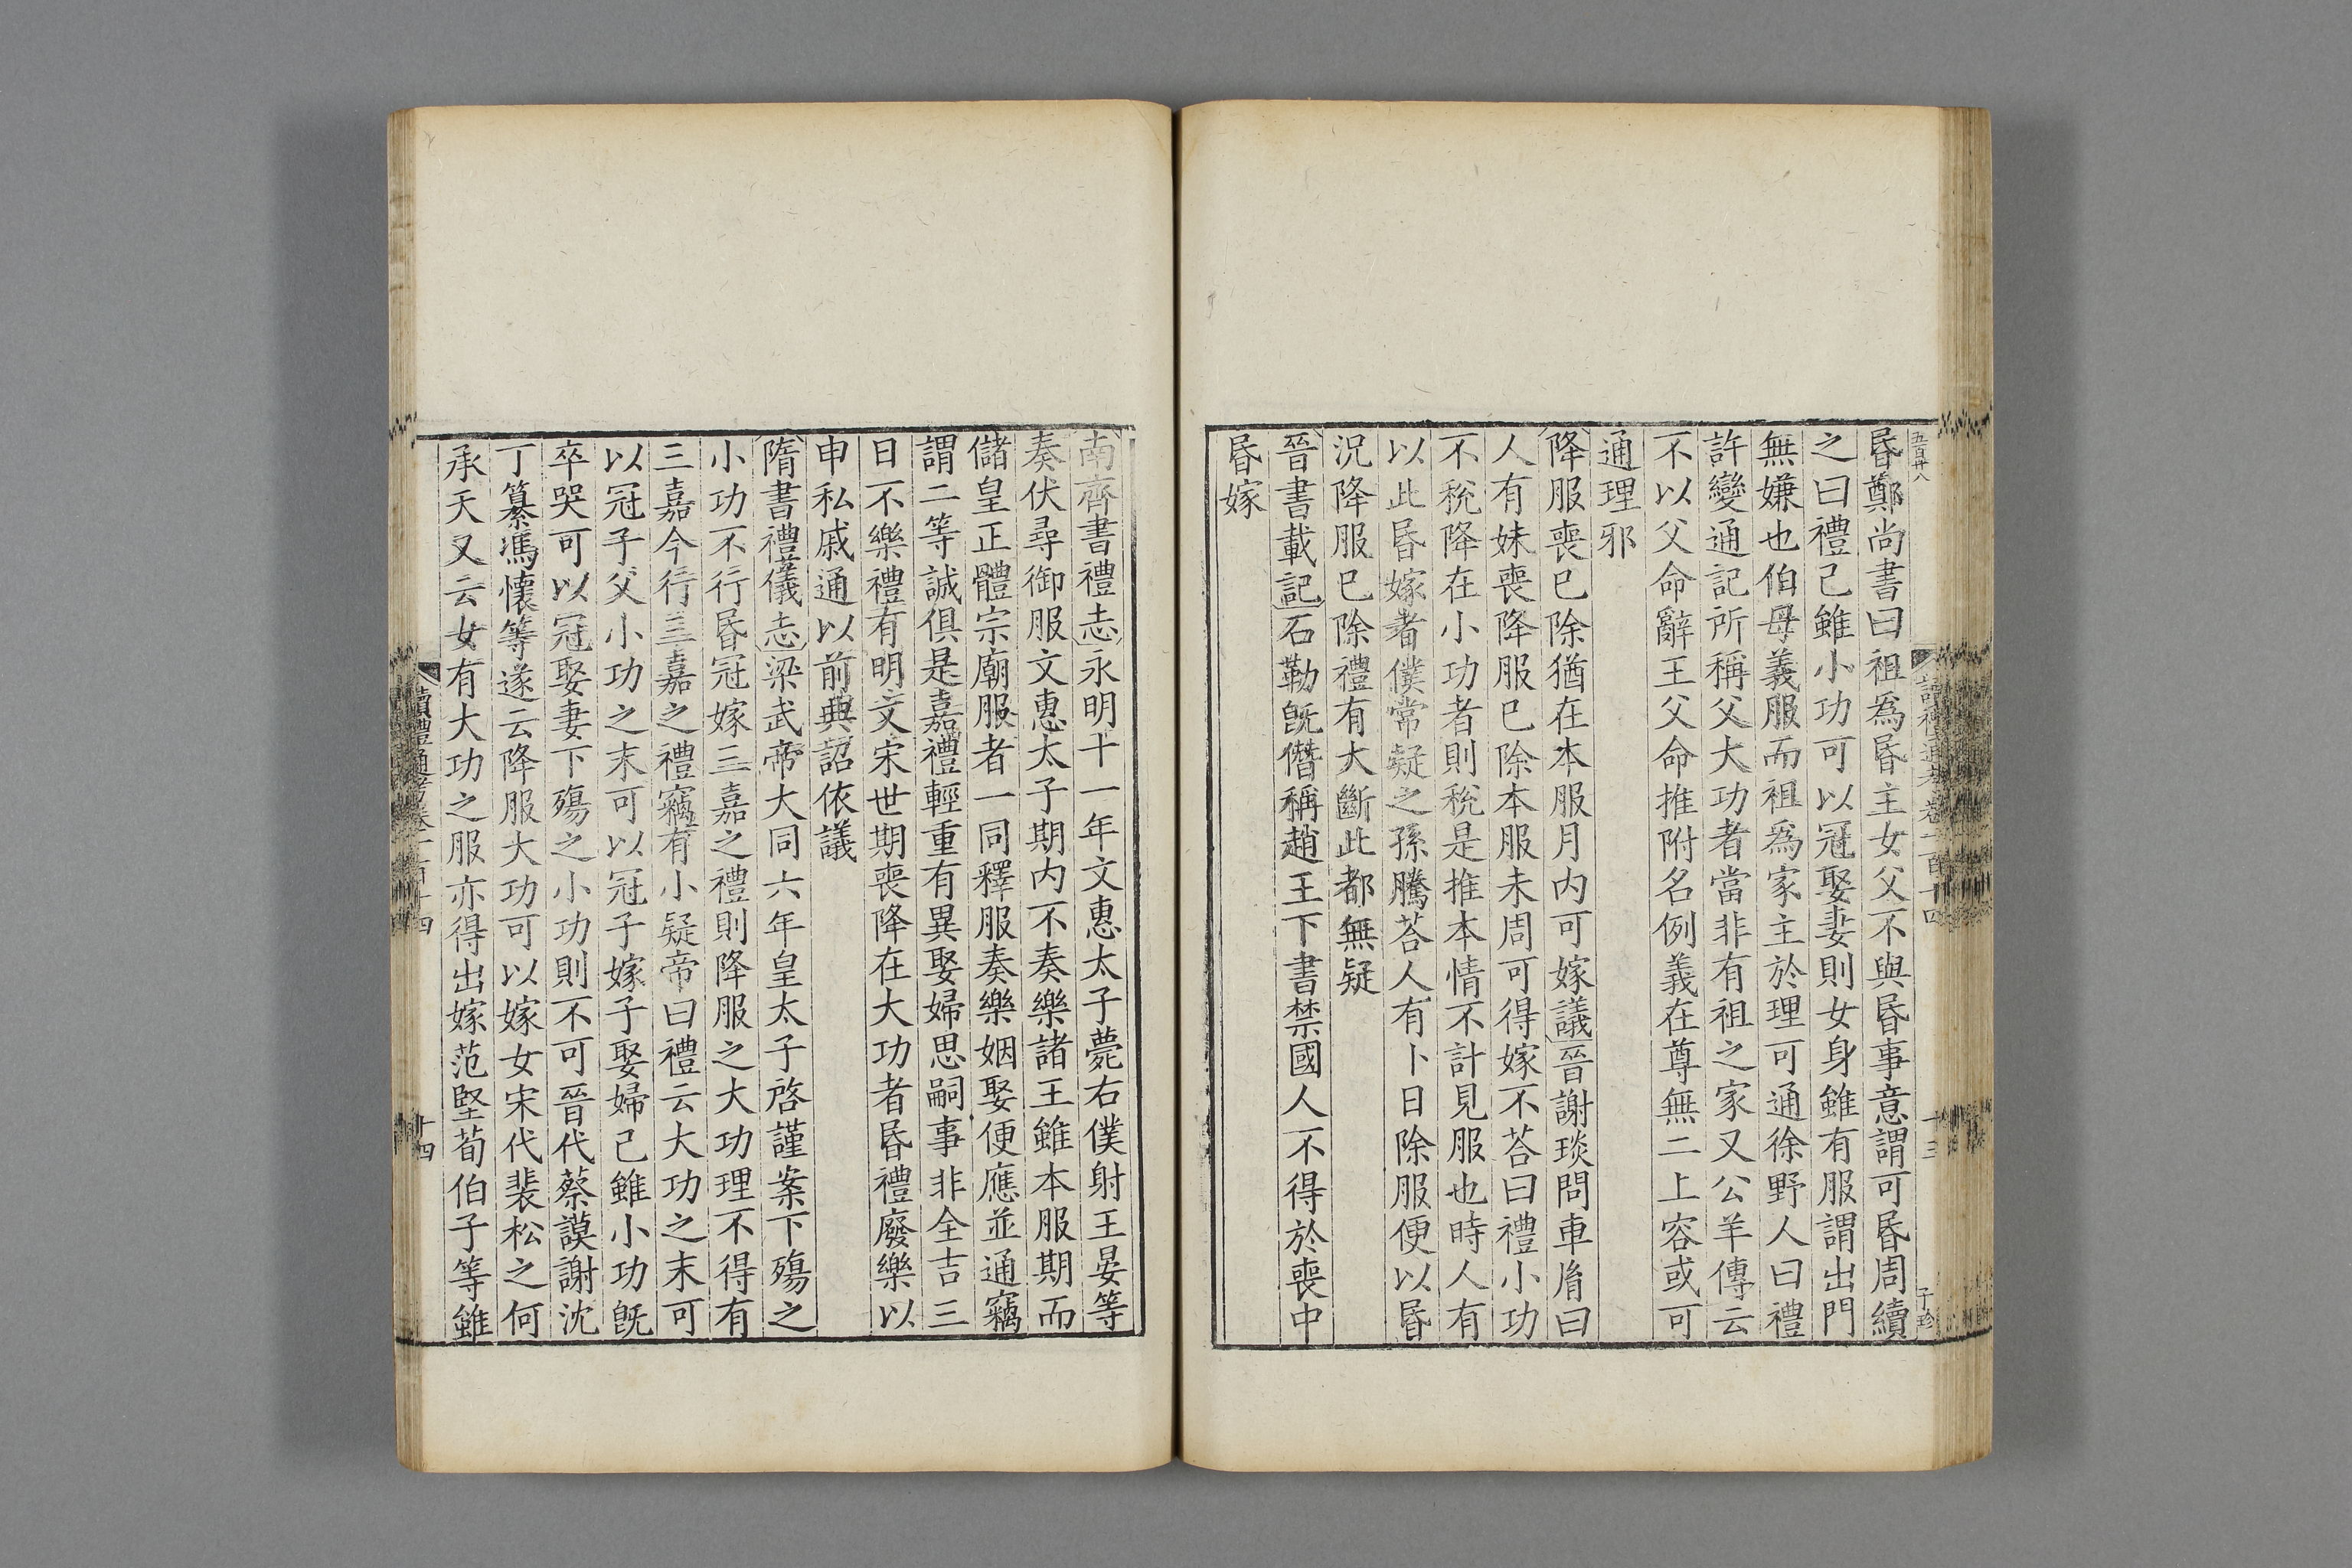 五百卅八
昬鄭尚書曰祖爲昬主女父不與昬事意謂可昬周續
之曰禮己雖小功可以冠娶妻則女身雖有服謂出門
無嫌也伯母義服而祖爲家主於理可通徐野人曰禮
許變通記所稱父大功者當非有祖之家又公羊傳云
不以父命辭王父命推附名例義在尊無二上容或可
通理邪
降服喪已除猶在本服月内可嫁議晉謝琰問車胤曰
人有妹喪降服已除本服未周可得嫁不荅曰禮小功
不稅降在小功者則稅是推本情不計見服也時人有
以此昬嫁者僕常疑之孫騰荅人有卜日除服便以昬
況降服已除禮有大斷此都無疑
晉書載記石勒旣僭稱趙王下書禁國人不得於喪中
昬嫁
讀禮通考卷一百十四
十三
子珍
南齊書禮志永明十一年文惠太子薨右僕射王晏等
奏伏尋御服文惠太子期内不奏樂諸王雖本服期而
儲皇正體宗廟服者一同釋服奏樂姻娶便應並通竊
謂二等誠俱是嘉禮輕重有異娶婦思嗣事非全吉三
日不樂禮有明文宋世期喪降在大功者昬禮廢樂以
申私戚通以前典詔依議
隋書禮儀志梁武帝大同六年皇太子啓謹案下殤之
小功不行昬冠嫁三嘉之禮則降服之大功理不得有
三嘉今行三嘉之禮竊有小疑帝曰禮云大功之末可
以冠子父小功之末可以冠子嫁子娶婦己雖小功旣
卒哭可以冠娶妻下殤之小功則不可晉代蔡謨謝沈
丁纂馮懷等遂云降服大功可以嫁女宋代裴松之何
承天又云女有大功之服亦得出嫁范堅荀伯子等雖
讀禮通考卷一百十四
十四